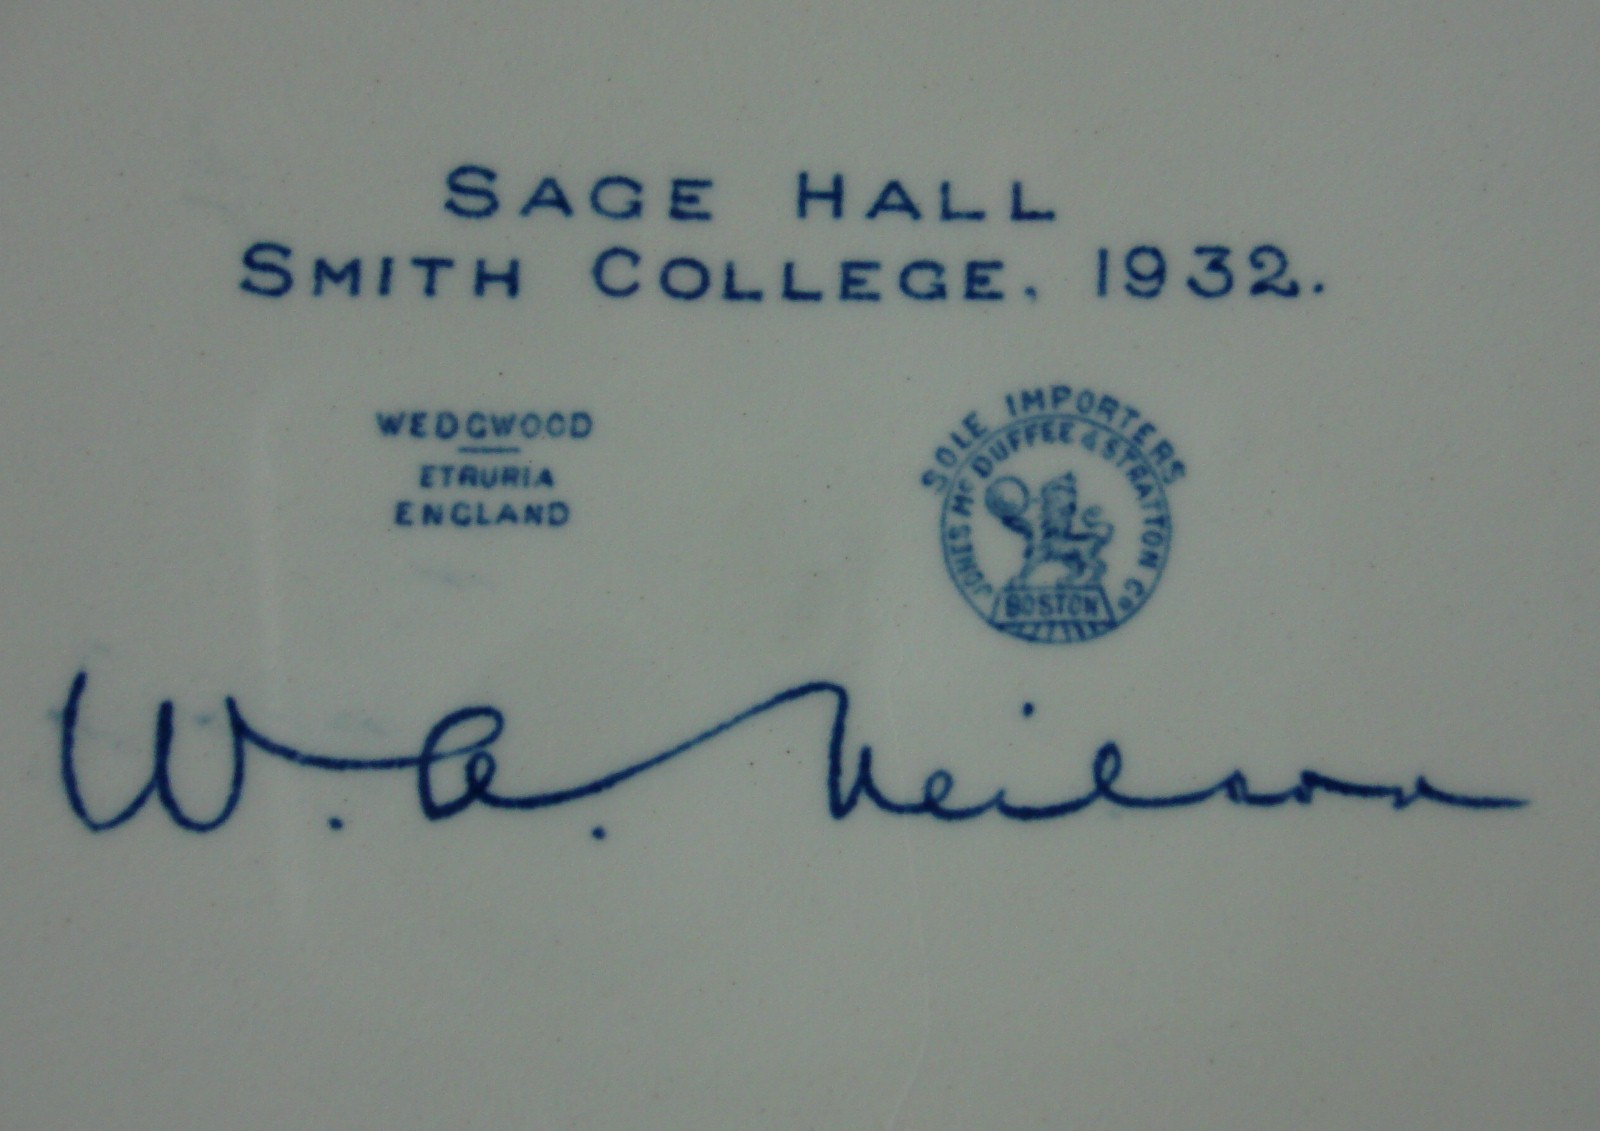 SAGE HALL
SMITH COLLEGE, 1932.
WEDGWOOD
ETRURIA
ENGLAND
SOLE IMPORTERS
JONES McDUFFEE & STRATTON Co
BOSTON
W. A. Neilson